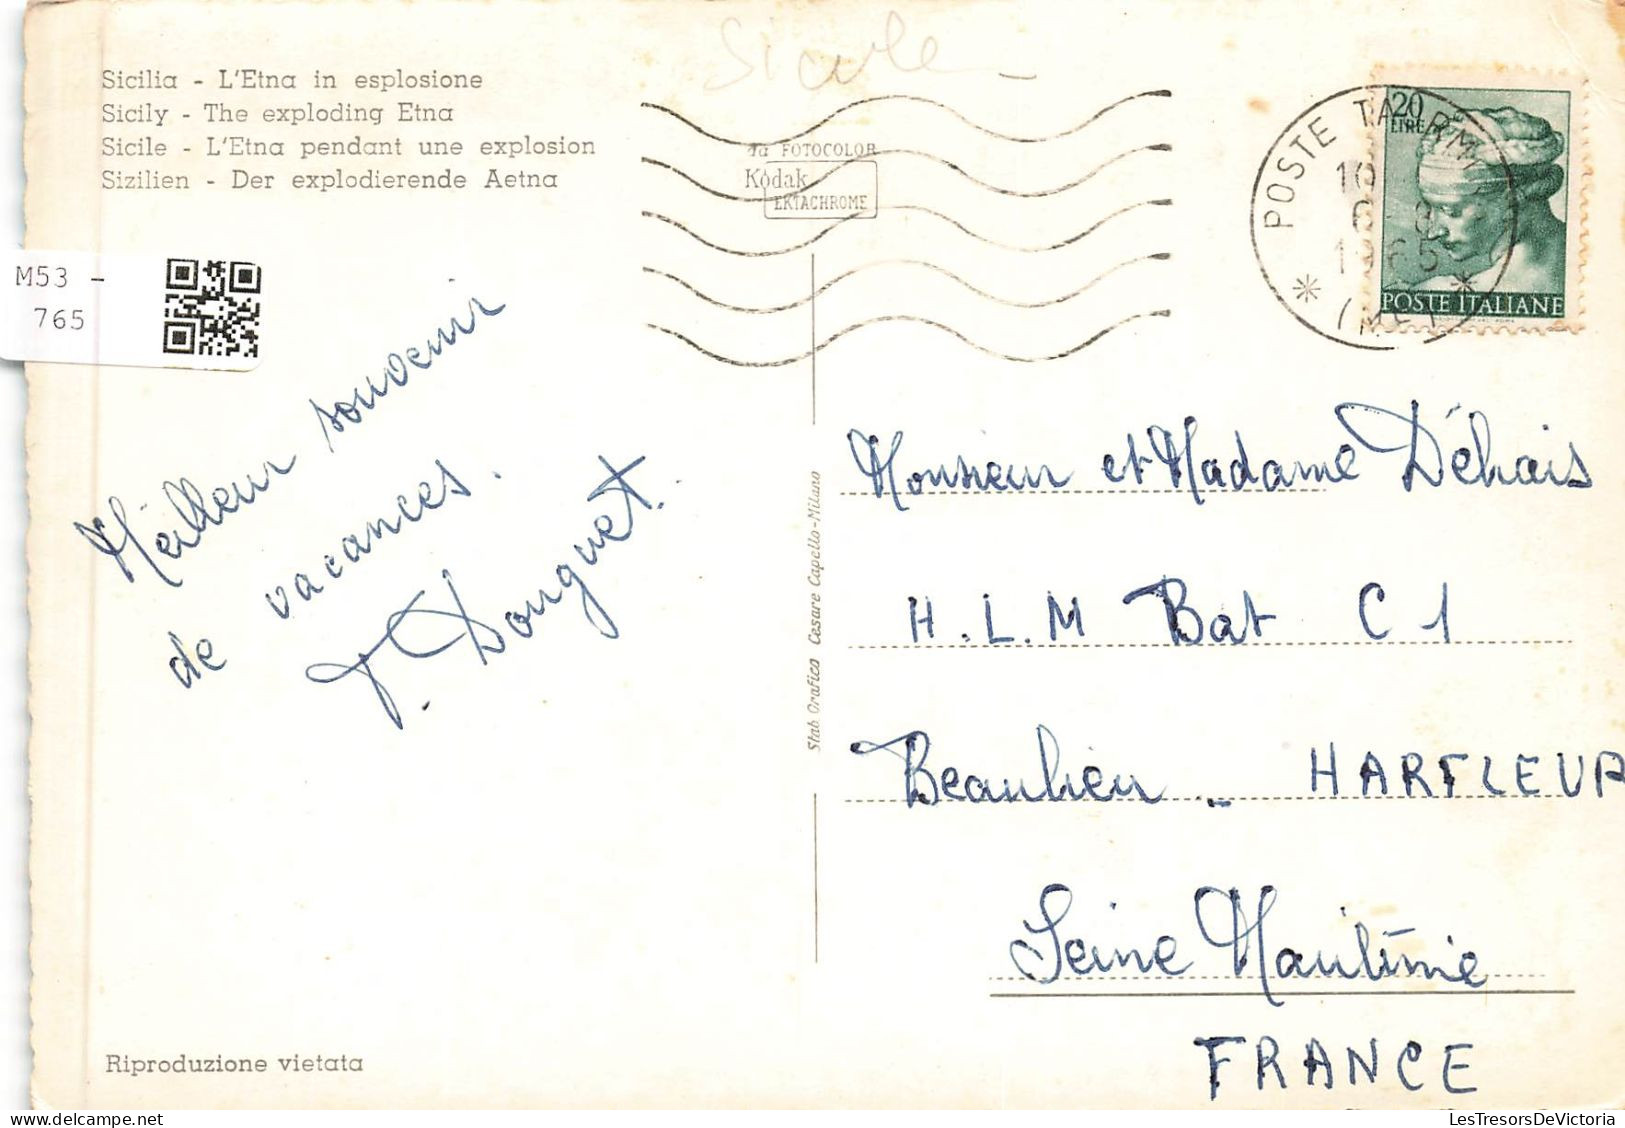 Sicile
Sicilia - L'Etna in esplosione
Sicily - The exploding Etna
Sicile - L'Etna pendant une explosion
Sizilien - Der explodierende Aetna
da FOTOCOLOR
Kodak
EKTACHROME
20
LIRE
POSTE ITALIANE
POSTE TAORMINA
1965
(ME)
M53 -
765
Meilleur souvenir
de vacances.
Monsieur et Madame Déhais
H.L.M Bat C 1
Beaulieu - HARFLEUR
Seine Maritime
FRANCE
Stab Grafico Cesare Capello-Milano
Riproduzione vietata
LesTresorsDeVictoria